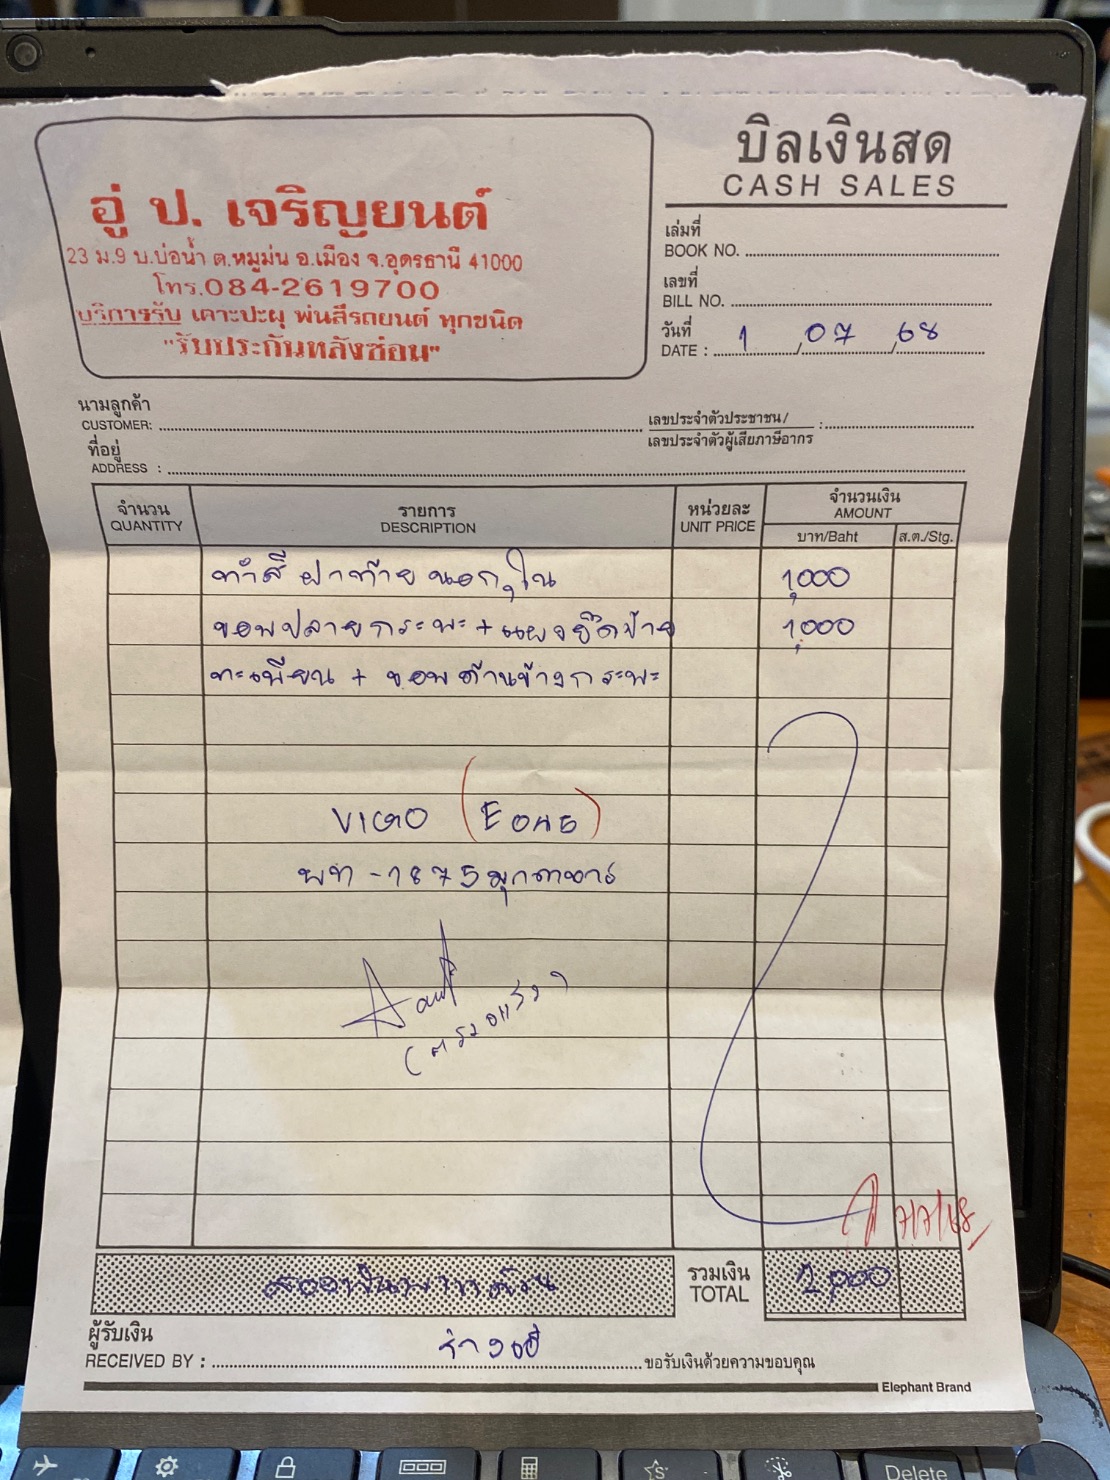 บิลเงินสด
CASH SALES
อู่ ป. เจริญยนต์
23 ม.9 บ.บ่อน้ำ ต.หมูม่น อ.เมือง จ.อุดรธานี 41000
โทร.084-2619700
บริการรับ เคาะปะผุ พ่นสีรถยนต์ ทุกชนิด
"รับประกันหลังซ่อม"
เล่มที่
BOOK NO.
เลขที่
BILL NO.
วันที่
DATE : 1 / 07 / 68
นามลูกค้า
CUSTOMER:
เลขประจำตัวประชาชน/ :
เลขประจำตัวผู้เสียภาษีอากร
ที่อยู่
ADDRESS :
จำนวน รายการ หน่วยละ จำนวนเงิน
QUANTITY DESCRIPTION UNIT PRICE AMOUNT
บาท/Baht ส.ต./Stg.
ทำสี ฝาท้าย นอก,ใน 1,000
ขอบปลายกระบะ + แผงยึดป้าย 1,000
ทะเบียน + ขอบด้านข้างกระบะ
VIGO
บท - 1875 มุกดาหาร
7/7/68
สองพันบาทถ้วน รวมเงิน 2,000
TOTAL
ผู้รับเงิน
RECEIVED BY : ขอรับเงินด้วยความขอบคุณ
Elephant Brand
Delete